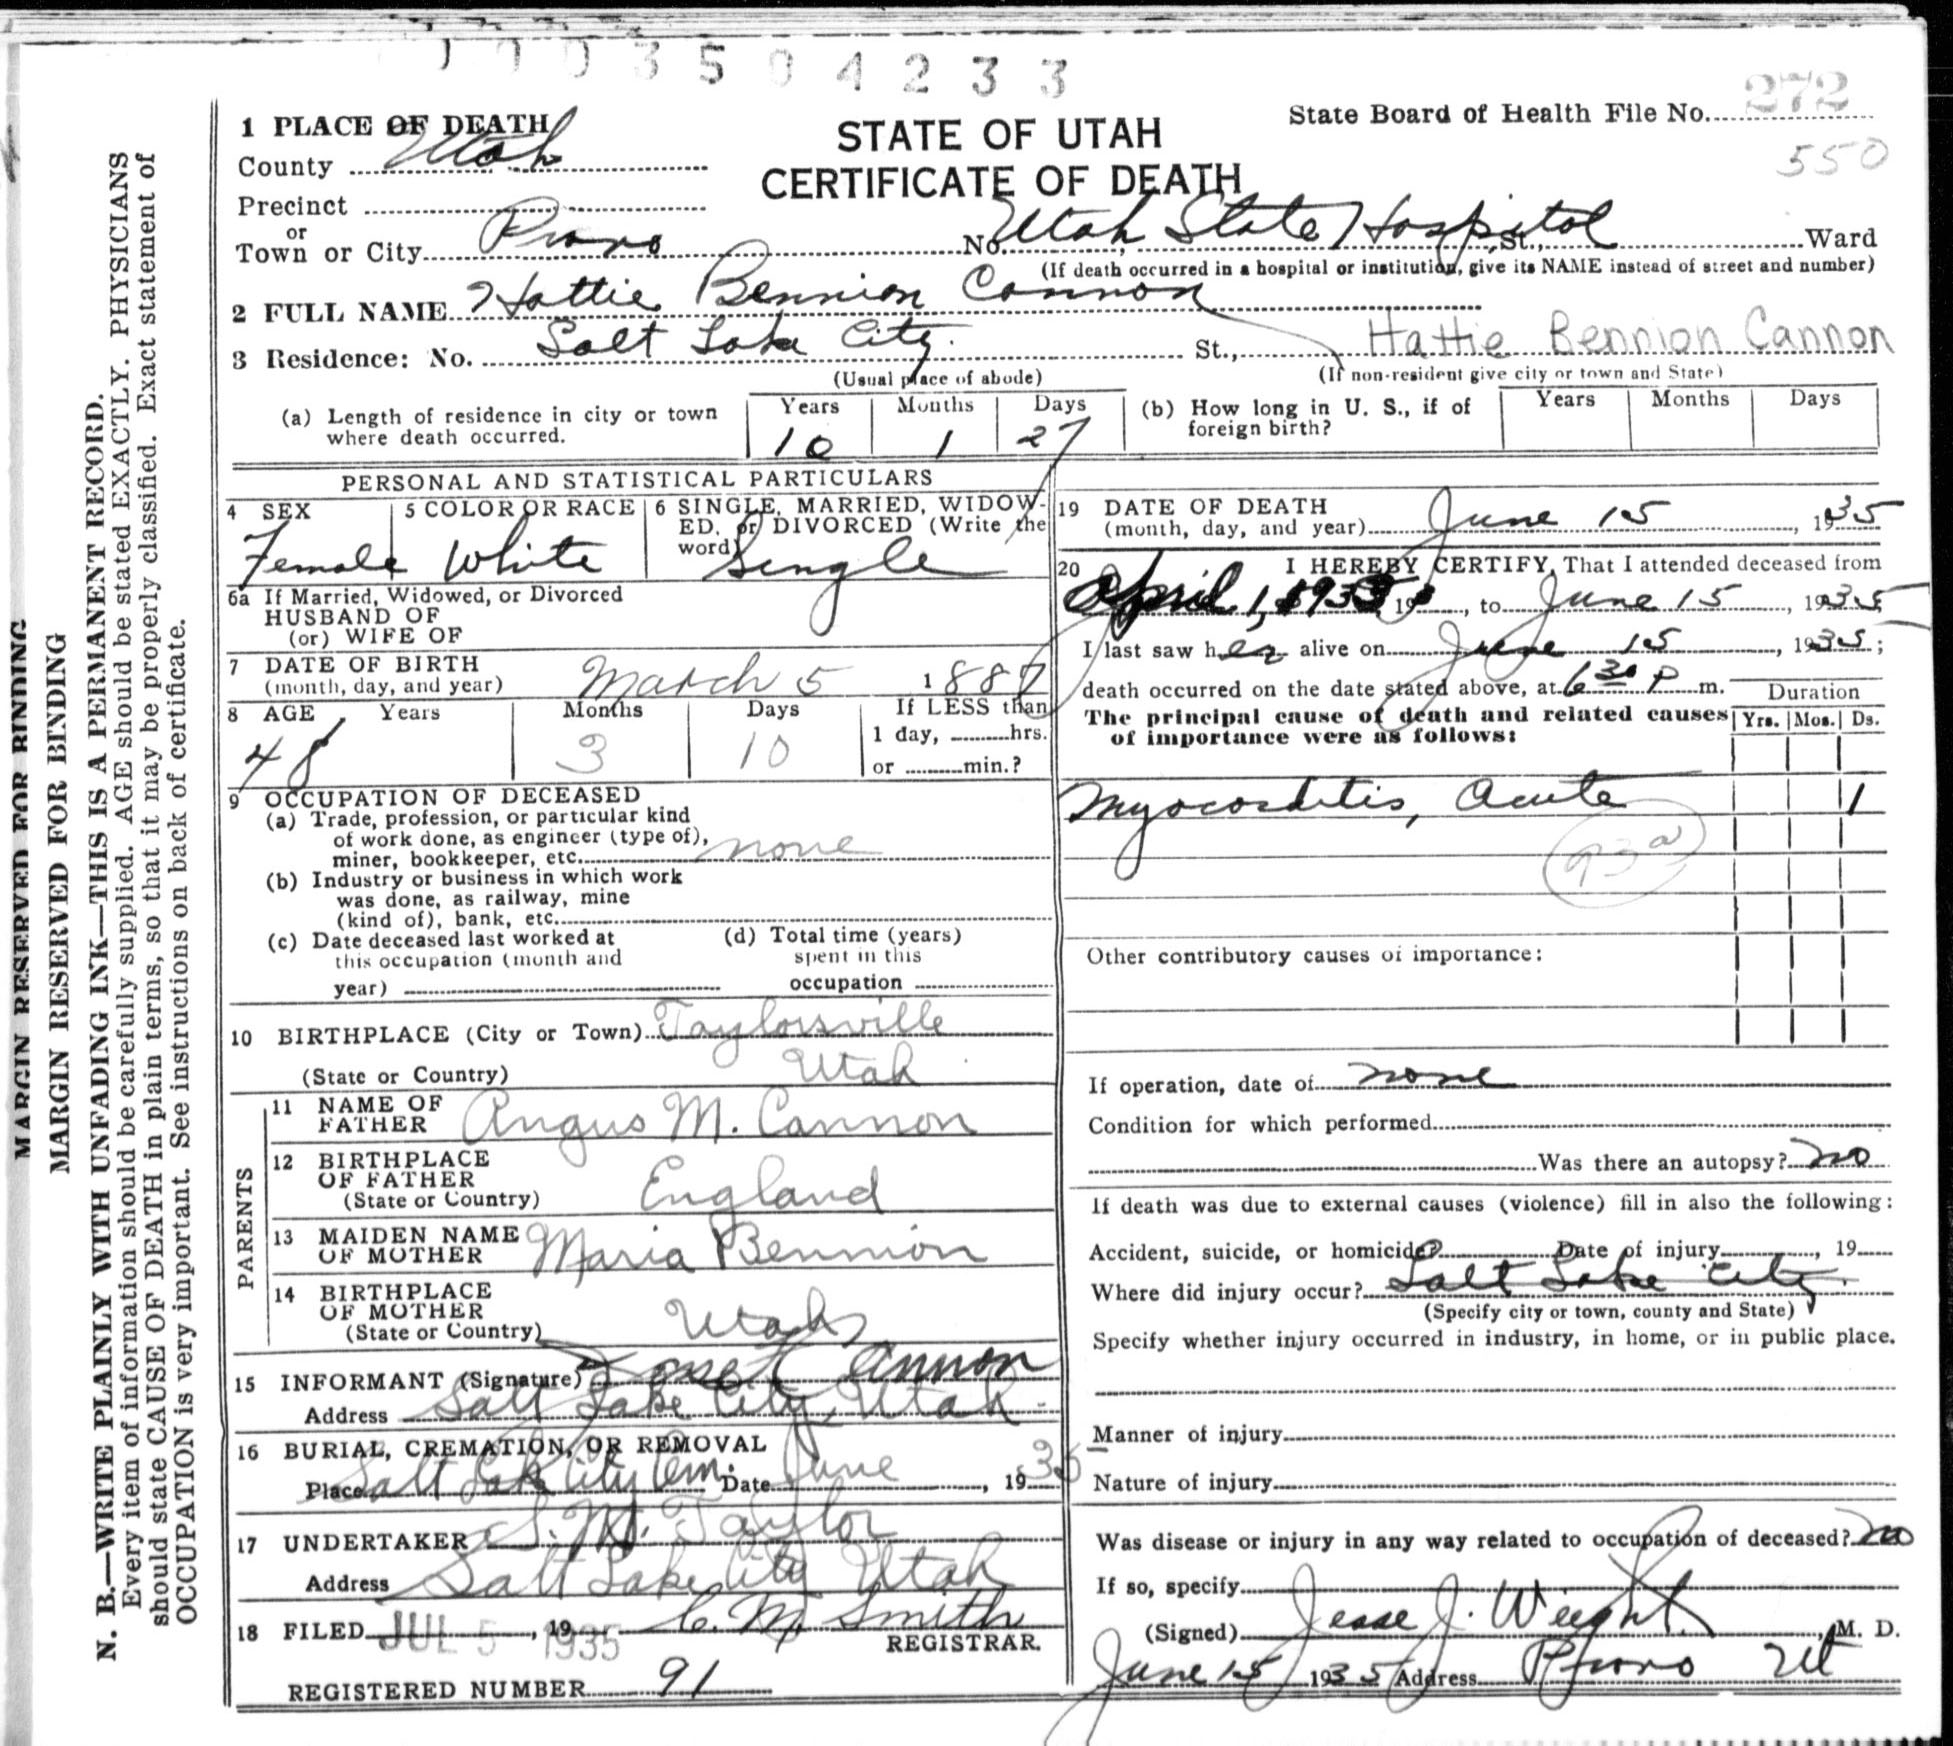 3 5 0 4 2 3 3
272
State Board of Health File No.
550
1 PLACE OF DEATH
STATE OF UTAH
CERTIFICATE OF DEATH
County Utah
Precinct
or
Town or City Provo No. Utah State Hospital St., Ward
(If death occurred in a hospital or institution, give its NAME instead of street and number)
2 FULL NAME Hattie Bennion Cannon
3 Residence: No. Salt Lake City. St., Hattie Bennion Cannon
(Usual place of abode) (If non-resident give city or town and State)
(a) Length of residence in city or town where death occurred. Years 10 Months 1 Days 27
(b) How long in U. S., if of foreign birth? Years Months Days
PERSONAL AND STATISTICAL PARTICULARS
4 SEX Female
5 COLOR OR RACE White
6 SINGLE, MARRIED, WIDOW-
ED, or DIVORCED (Write the
word) Single
6a If Married, Widowed, or Divorced
HUSBAND OF
(or) WIFE OF
7 DATE OF BIRTH
(month, day, and year) March 5 1887
8 AGE Years Months Days If LESS than
48 3 10 1 day, hrs.
or min.?
9 OCCUPATION OF DECEASED
(a) Trade, profession, or particular kind
of work done, as engineer (type of),
miner, bookkeeper, etc. none
(b) Industry or business in which work
was done, as railway, mine
(kind of), bank, etc.
(c) Date deceased last worked at
this occupation (month and
year)
(d) Total time (years)
spent in this
occupation
10 BIRTHPLACE (City or Town) Taylorsville
(State or Country) Utah
PARENTS
11 NAME OF
FATHER Angus M. Cannon
12 BIRTHPLACE
OF FATHER
(State or Country) England
13 MAIDEN NAME
OF MOTHER Maria Bennion
14 BIRTHPLACE
OF MOTHER
(State or Country) Utah
15 INFORMANT (Signature) Cannon
Address Salt Lake City, Utah.
16 BURIAL, CREMATION, OR REMOVAL
Place Salt Lake City Cem. Date June, 1935
17 UNDERTAKER S. M. Taylor
Address Salt Lake City Utah
18 FILED JUL 5 1935, 19 C. M. Smith
REGISTRAR.
REGISTERED NUMBER 91
19 DATE OF DEATH
(month, day, and year) June 15, 1935
20 I HEREBY CERTIFY, That I attended deceased from
April 1, 1935, 19, to June 15, 1935
I last saw her alive on June 15, 1935;
death occurred on the date stated above, at 6 30 P m.
Duration
The principal cause of death and related causes Yrs. Mos. Ds.
of importance were as follows:
Myocarditis, Acute 1
93a
Other contributory causes of importance:
If operation, date of none
Condition for which performed
Was there an autopsy? no
If death was due to external causes (violence) fill in also the following:
Accident, suicide, or homicide? Date of injury, 19
Where did injury occur? Salt Lake City.
(Specify city or town, county and State)
Specify whether injury occurred in industry, in home, or in public place.
Manner of injury
Nature of injury
Was disease or injury in any way related to occupation of deceased? no
If so, specify
(Signed) Jesse J. Weight, M. D.
June 15 1935 Address Provo Ut
MARGIN RESERVED FOR BINDING
MARGIN RESERVED FOR BINDING
N. B.—WRITE PLAINLY WITH UNFADING INK—THIS IS A PERMANENT RECORD.
Every item of information should be carefully supplied. AGE should be stated EXACTLY. PHYSICIANS
should state CAUSE OF DEATH in plain terms, so that it may be properly classified. Exact statement of
OCCUPATION is very important. See instructions on back of certificate.